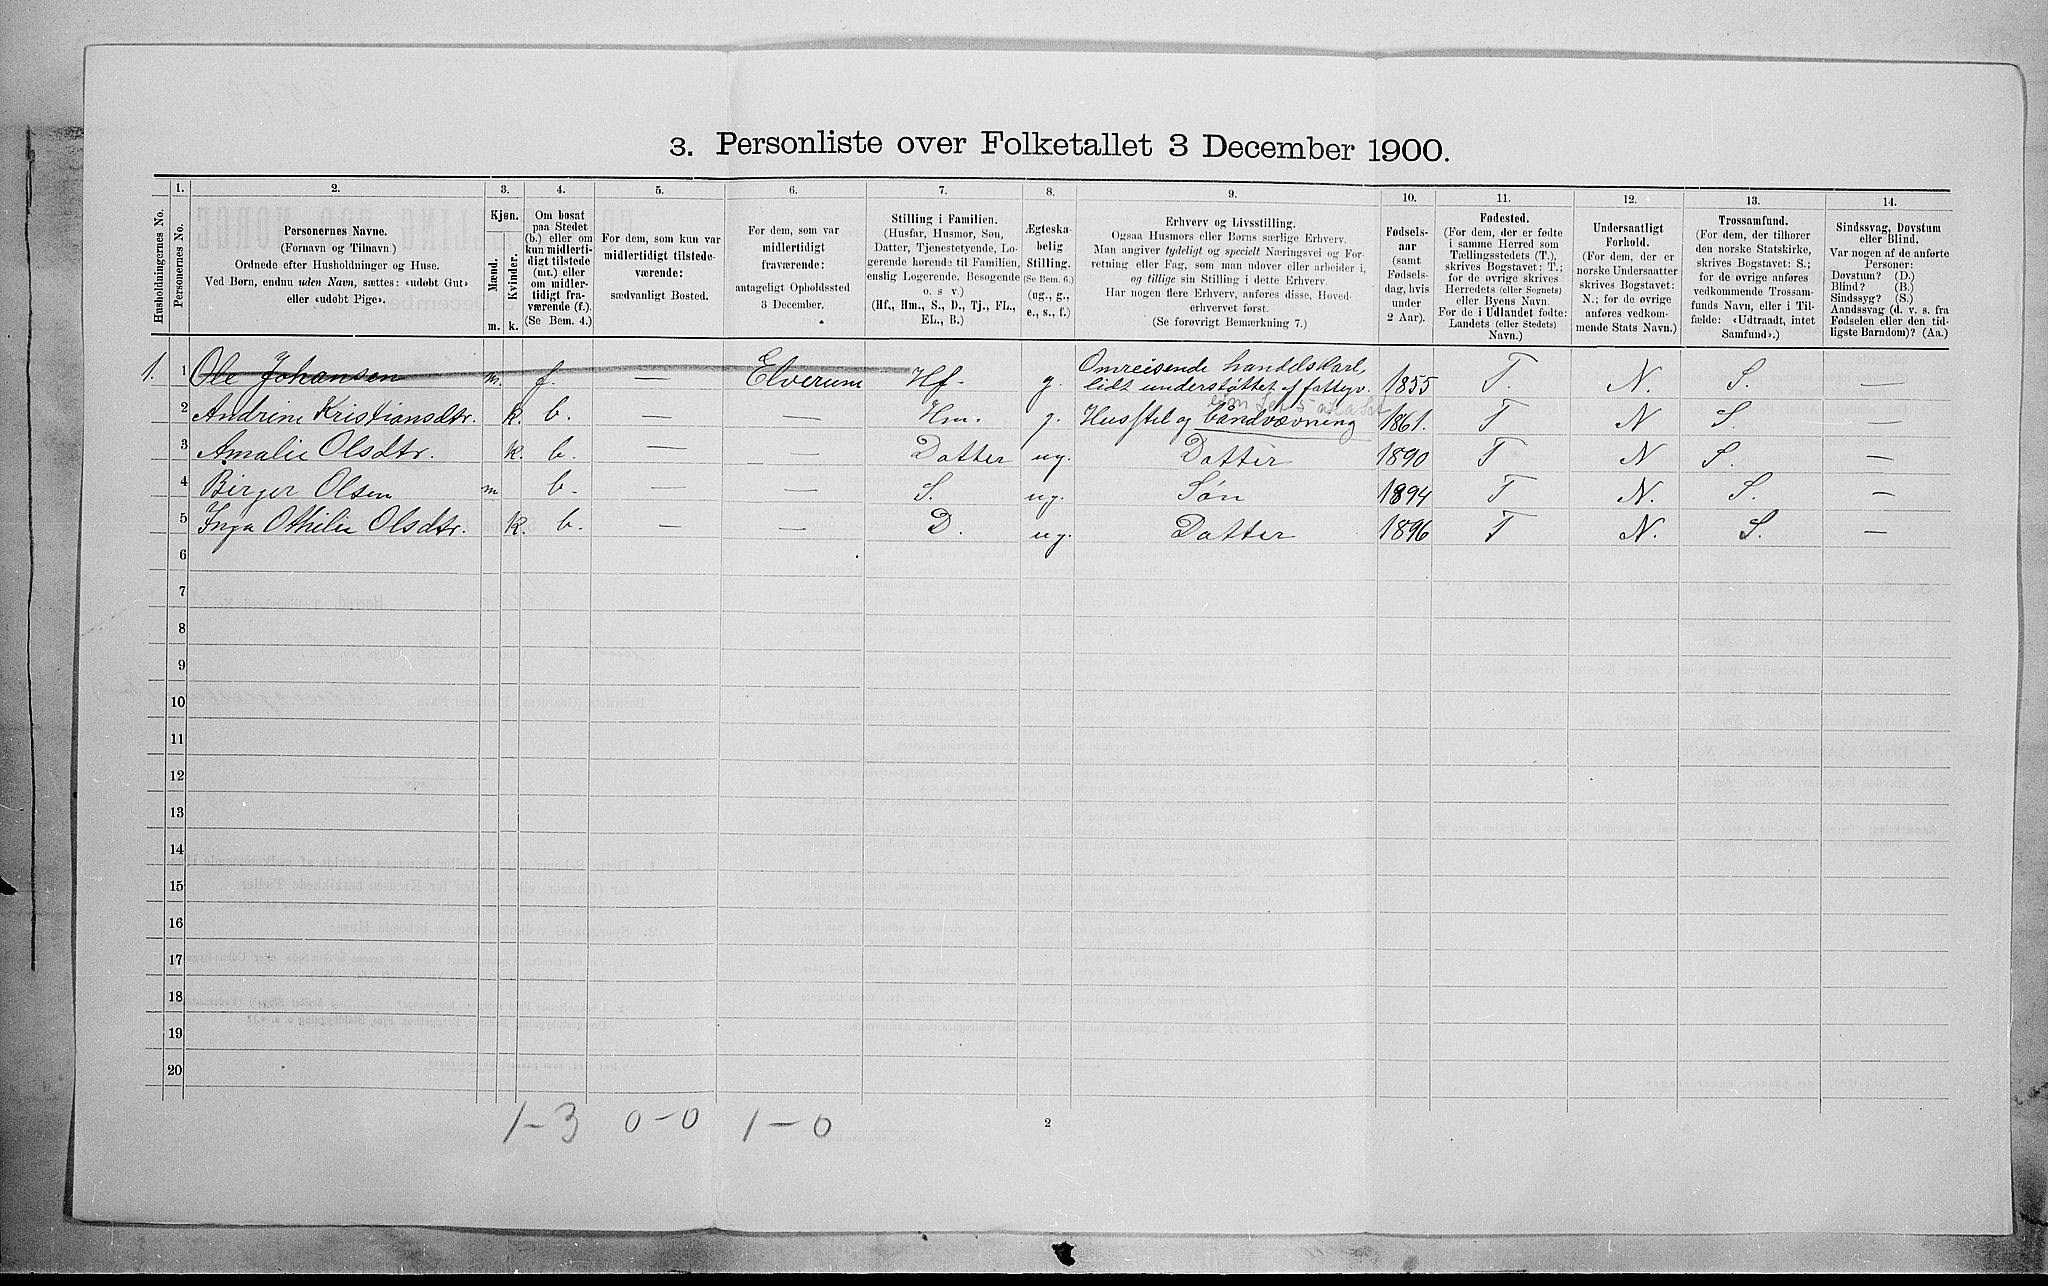 3. Personliste over Folketallet 3 December 1900.
1. 2. 3. 4. 5. 6. 7. 8. 9. 10. 11. 12. 13. 14.
Husholdningernes No.
Personernes No.
Personernes Navne.
(Fornavn og Tilnavn.)
Ordnede efter Husholdninger og Huse.
Ved Børn, endnu uden Navn, sættes: «udøbt Gut»
eller «udøbt Pige».
Kjøn.
Mænd.
Kvinder.
m. k.
Om bosat
paa Stedet
(b.) eller om
kun midlerti-
digt tilstede
(mt.) eller
om midler-
tidigt fra-
værende (f.).
(Se Bem. 4.)
For dem, som kun var
midlertidigt tilstede-
værende:
sædvanligt Bosted.
For dem, som var
midlertidigt
fraværende:
antageligt Opholdssted
3 December.
Stilling i Familien.
(Husfar, Husmor, Søn,
Datter, Tjenestetyende, Lo-
gerende hørende til Familien,
enslig Logerende, Besøgende
o. s. v.)
(Hf., Hm., S., D., Tj., FL.,
EL., B.)
Ægteska-
belig
Stilling.
(Se Bem. 6.)
(ug., g.,
e., s., f.)
Erhverv og Livsstilling.
Ogsaa Husmors eller Børns særlige Erhverv.
Man angiver tydeligt og specielt Næringsvei og For-
retning eller Fag, som man udøver eller arbeider i,
og tillige sin Stilling i dette Erhverv.
Har nogen flere Erhverv, anføres disse, Hoved-
erhvervet først.
(Se forøvrigt Bemærkning 7.)
Fødsels-
aar
(samt
Fødsels-
dag, hvis
under
2 Aar).
Fødested.
(For dem, der er fødte
i samme Herred som
Tællingsstedets (T.),
skrives Bogstavet: T.;
for de øvrige skrives
Herredets (eller Sognets)
eller Byens Navn.
For de i Udlandet fødte:
Landets (eller Stedets)
Navn.)
Undersaatligt
Forhold.
(For dem, der er
norske Undersaatter
skrives Bogstavet:
N.; for de øvrige
anføres vedkom-
mende Stats Navn.)
Trossamfund.
(For dem, der tilhører
den norske Statskirke,
skrives Bogstavet: S.;
for de øvrige anføres
vedkommende Trossam-
funds Navn, eller i Til-
fælde: «Udtraadt, intet
Samfund».)
Sindssvag, Døvstum
eller Blind.
Var nogen af de anførte
Personer:
Døvstum? (D.)
Blind? (B.)
Sindssyg? (S.)
Aandssvag (d. v. s. fra
Fødselen eller den tid-
ligste Barndom)? (Aa.)
1. 1 Ole Johansen m. f. — Elverum Hf. g. Omreisende handelskarl,
lidt understøttet af fattigv. 1855 T. N. S. —
2 Andrine Kristiansdtr. k. b. — — Hm. g. Husstel og båndvævning 1861. T N S. —
3 Amalie Olsdtr. k. b. — — Datter ug. Datter 1890 T N S. —
4 Birger Olsen m b. — — S. ug. Søn 1894 T N. S. —
5 Inga Othilie Olsdtr. k. b. — — D. ug. Datter 1896 T N. S. —
6
7
8
9
10
11
12
13
14
15
16
17
18
19
20
1-3 0-0 1-0
2